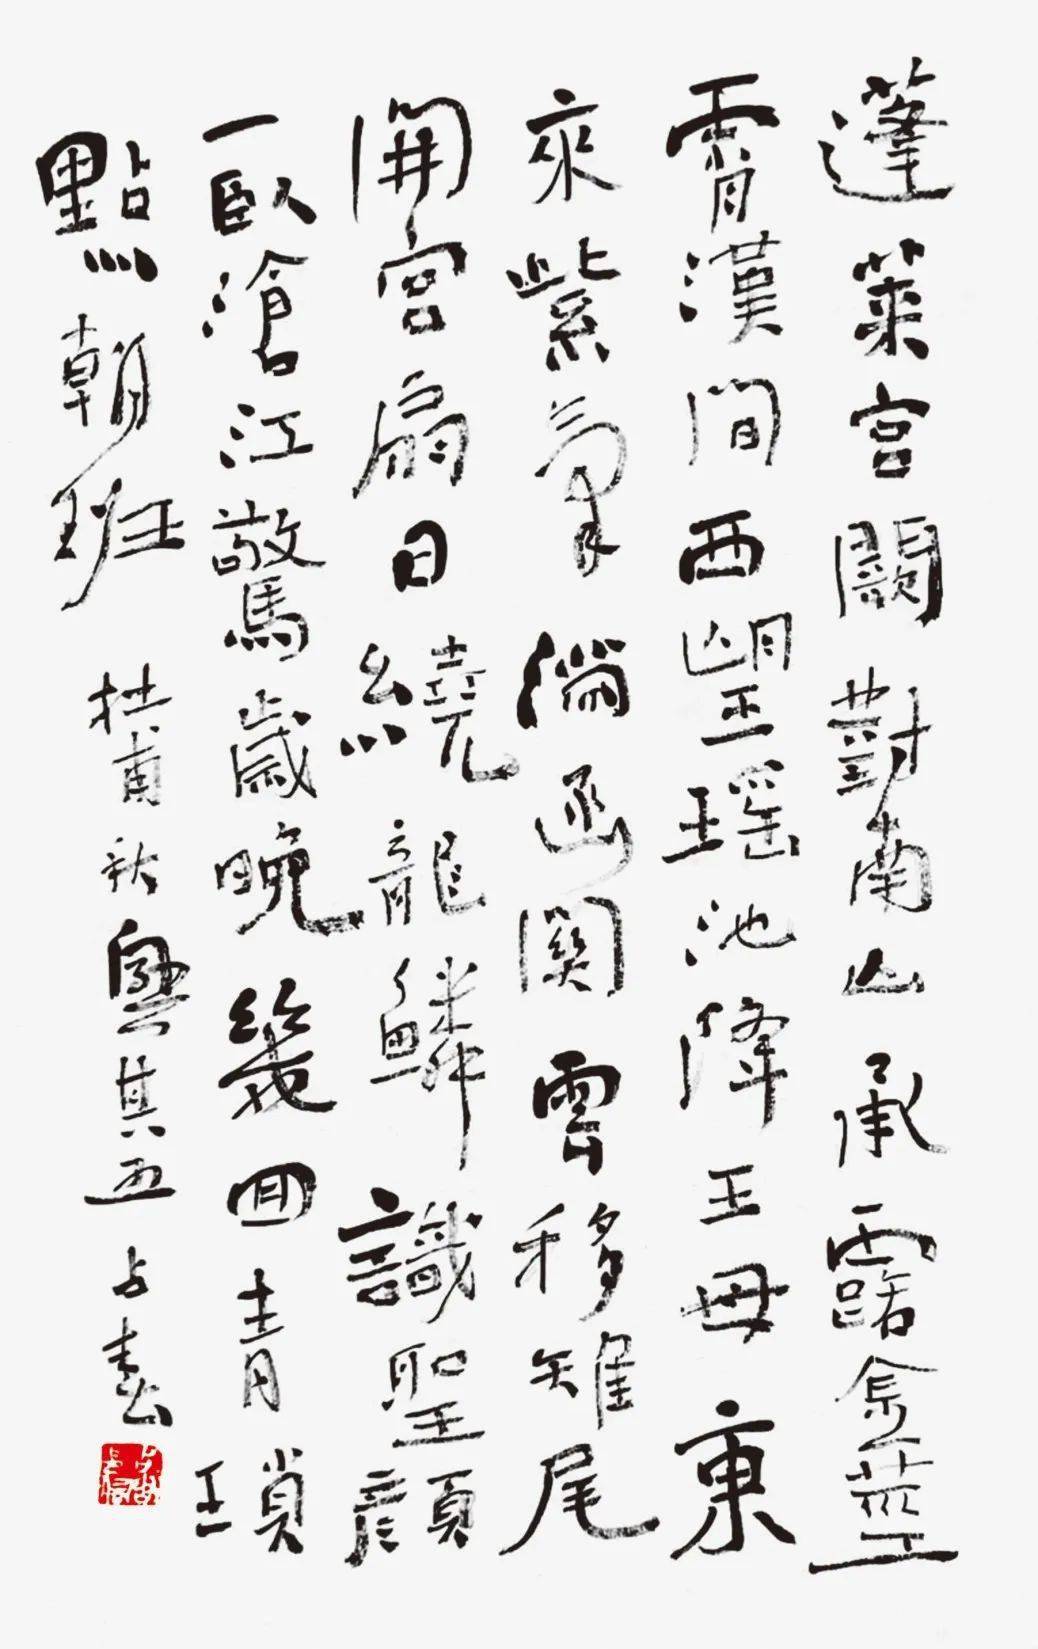 蓬萊宮闕對南山承露金莖
霄漢間西望瑶池降王母東
来紫氣滿函関雲移雉尾
開宮扇日繞龍鱗識聖顔
一臥滄江驚歲晚幾回青瑣
點朝班 杜甫秋興其五 占